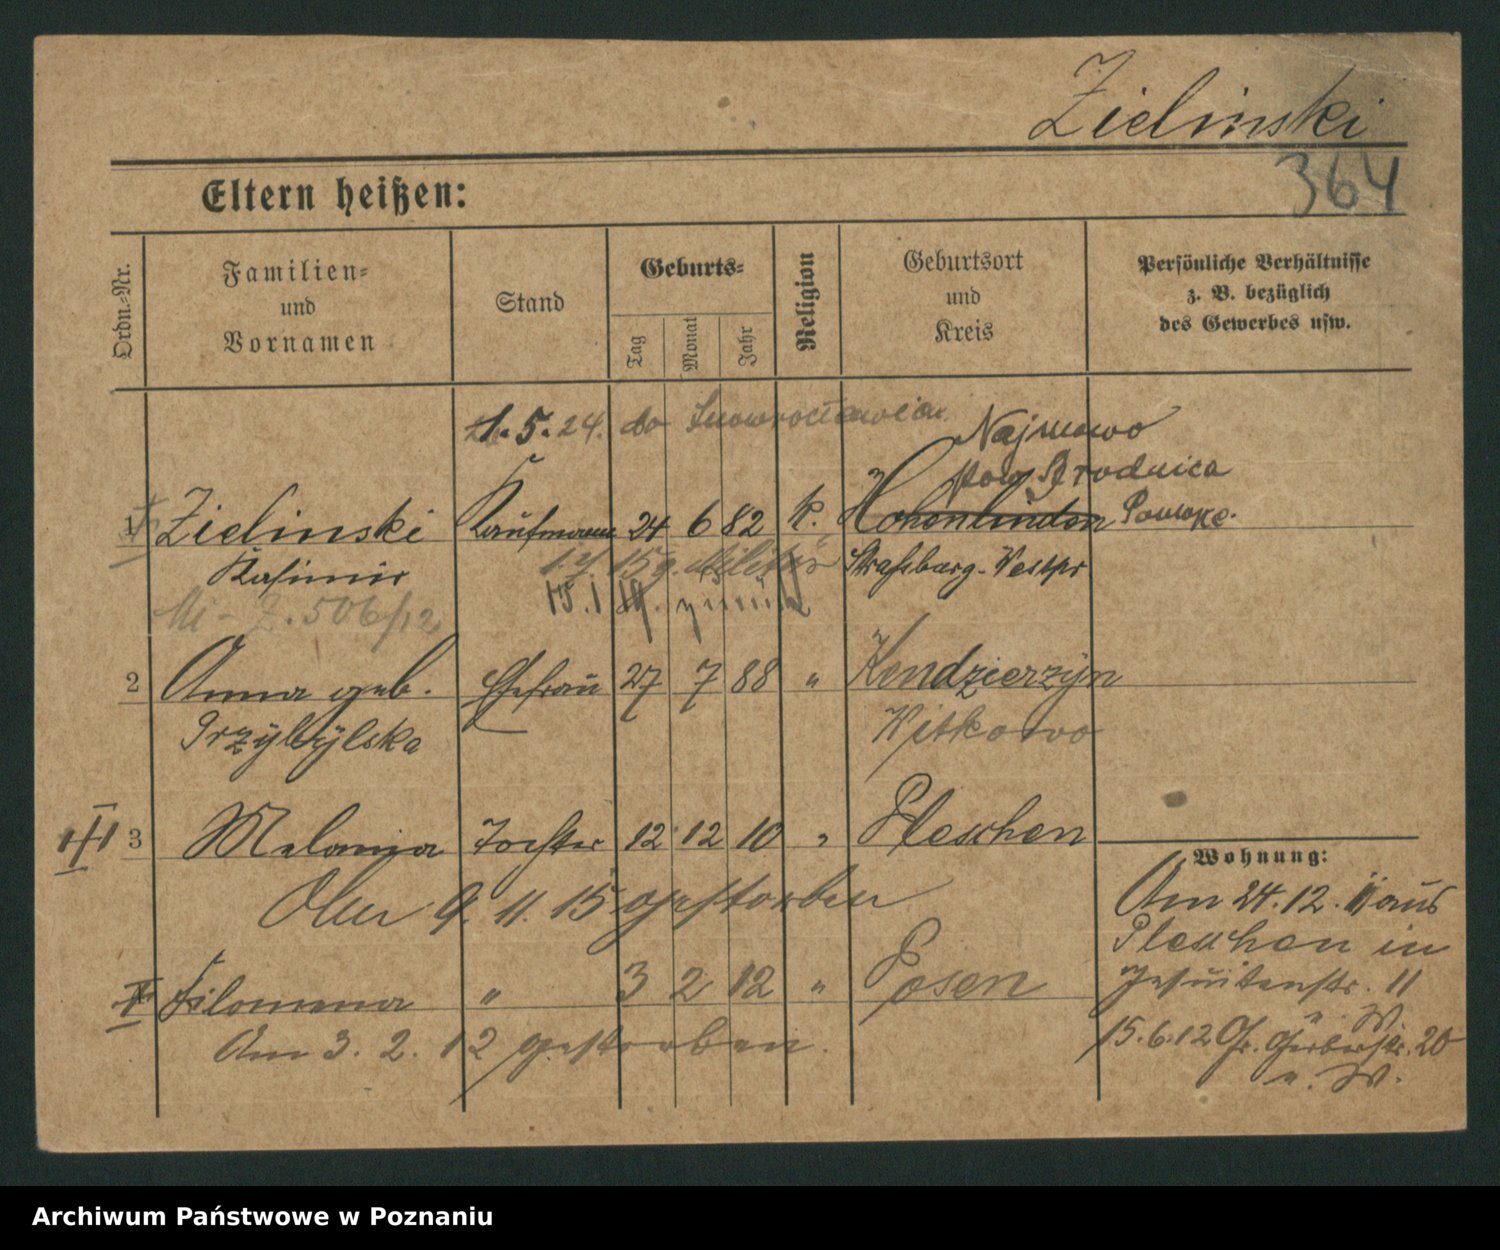 Zielinski
364
Eltern heißen:
Ordn.-Nr.
Familien-
und
Vornamen
Stand
Geburts-
Tag
Monat
Jahr
Religion
Geburtsort
und
Kreis
Persönliche Verhältnisse
z. B. bezüglich
des Gewerbes usw.
1.5.24. do Inowrocławia
Najmowo
pow. Brodnica
1 Zielinski Kaufmann 24 6 82 k. Hohenlinden Pomorze.
Kasimir 15 Militär Strasburg-Westpr
Mi-Z.506/12 15.1.19. zurück
2 Anna geb. Ehefrau 27 7 88 " Kendzierzyn
Przybylska Witkowo
3 Melania Tochter 12 12 10 " Pleschen
Am 9.11.15 gestorben
Wohnung:
Am 24.12.11 aus
Pleschen in
Jesuitenstr. 11
Filomena " 3 2 12 " Posen
u. W.
Am 3.2.12 gestorben.
15.6.12 Gr. Gerberstr. 20
u. W.
Archiwum Państwowe w Poznaniu